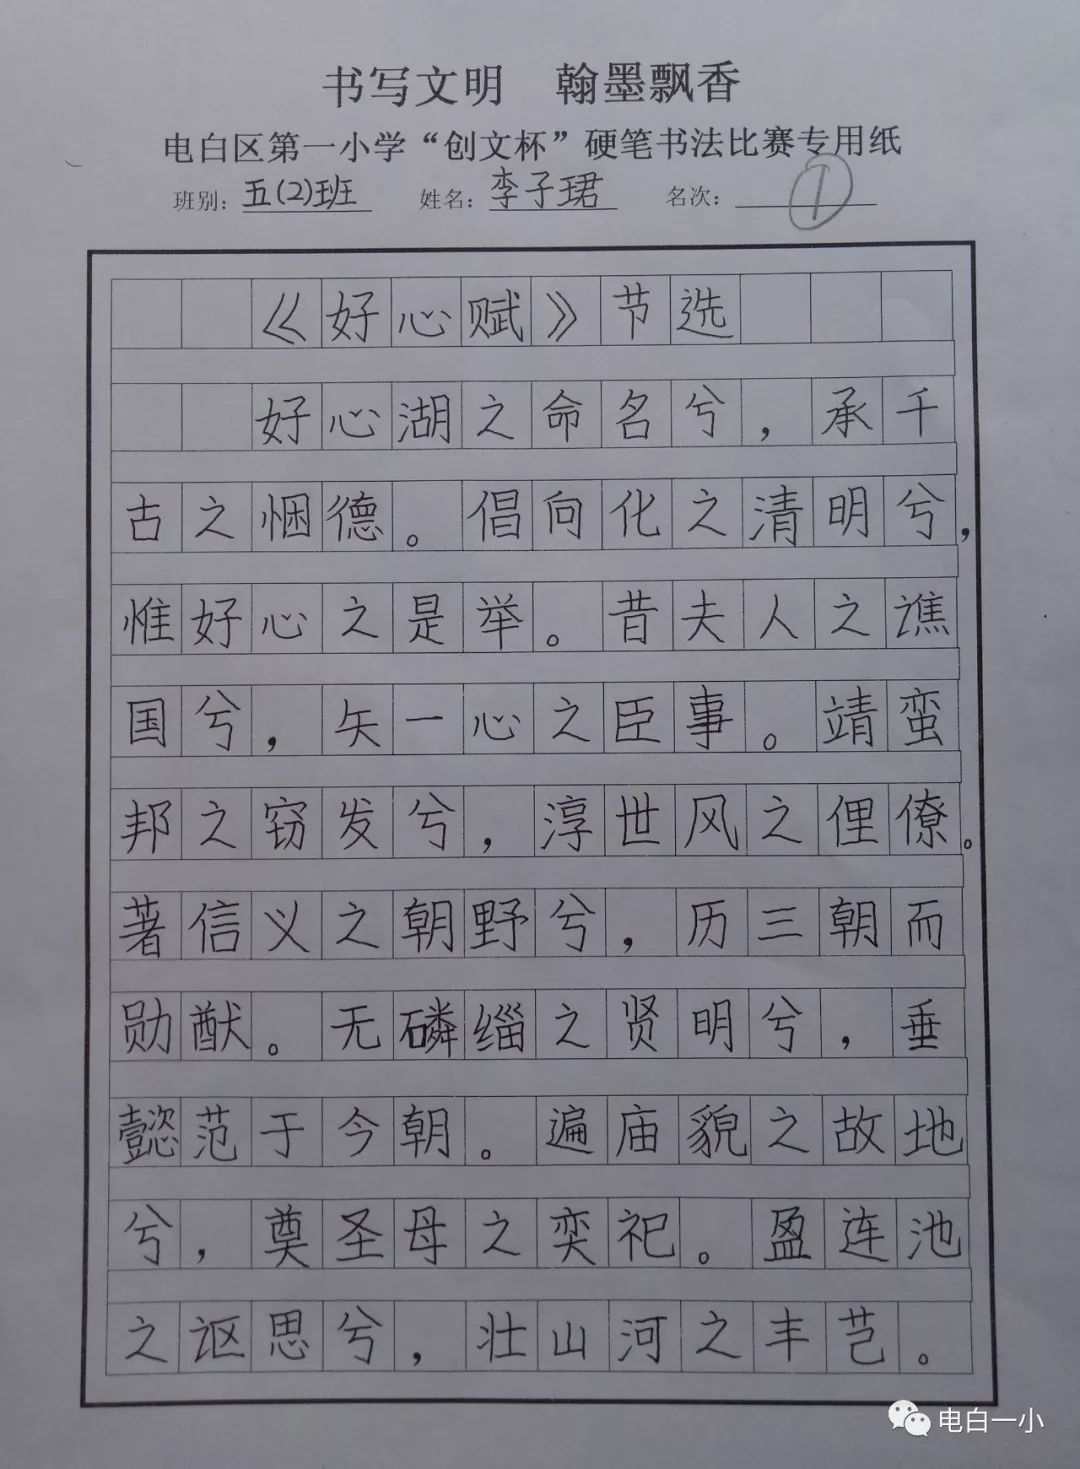 书写文明 翰墨飘香
电白区第一小学“创文杯”硬笔书法比赛专用纸
班别：五(2)班 姓名：李子珺 名次：①
《好心赋》节选
好心湖之命名兮，承千
古之悃德。倡向化之清明兮，
惟好心之是举。昔夫人之谯
国兮，矢一心之臣事。靖蛮
邦之窃发兮，淳世风之俚僚。
著信义之朝野兮，历三朝而
勋猷。无磷缁之贤明兮，垂
懿范于今朝。遍庙貌之故地
兮，奠圣母之奕祀。盈连池
之讴思兮，壮山河之丰芑。
电白一小